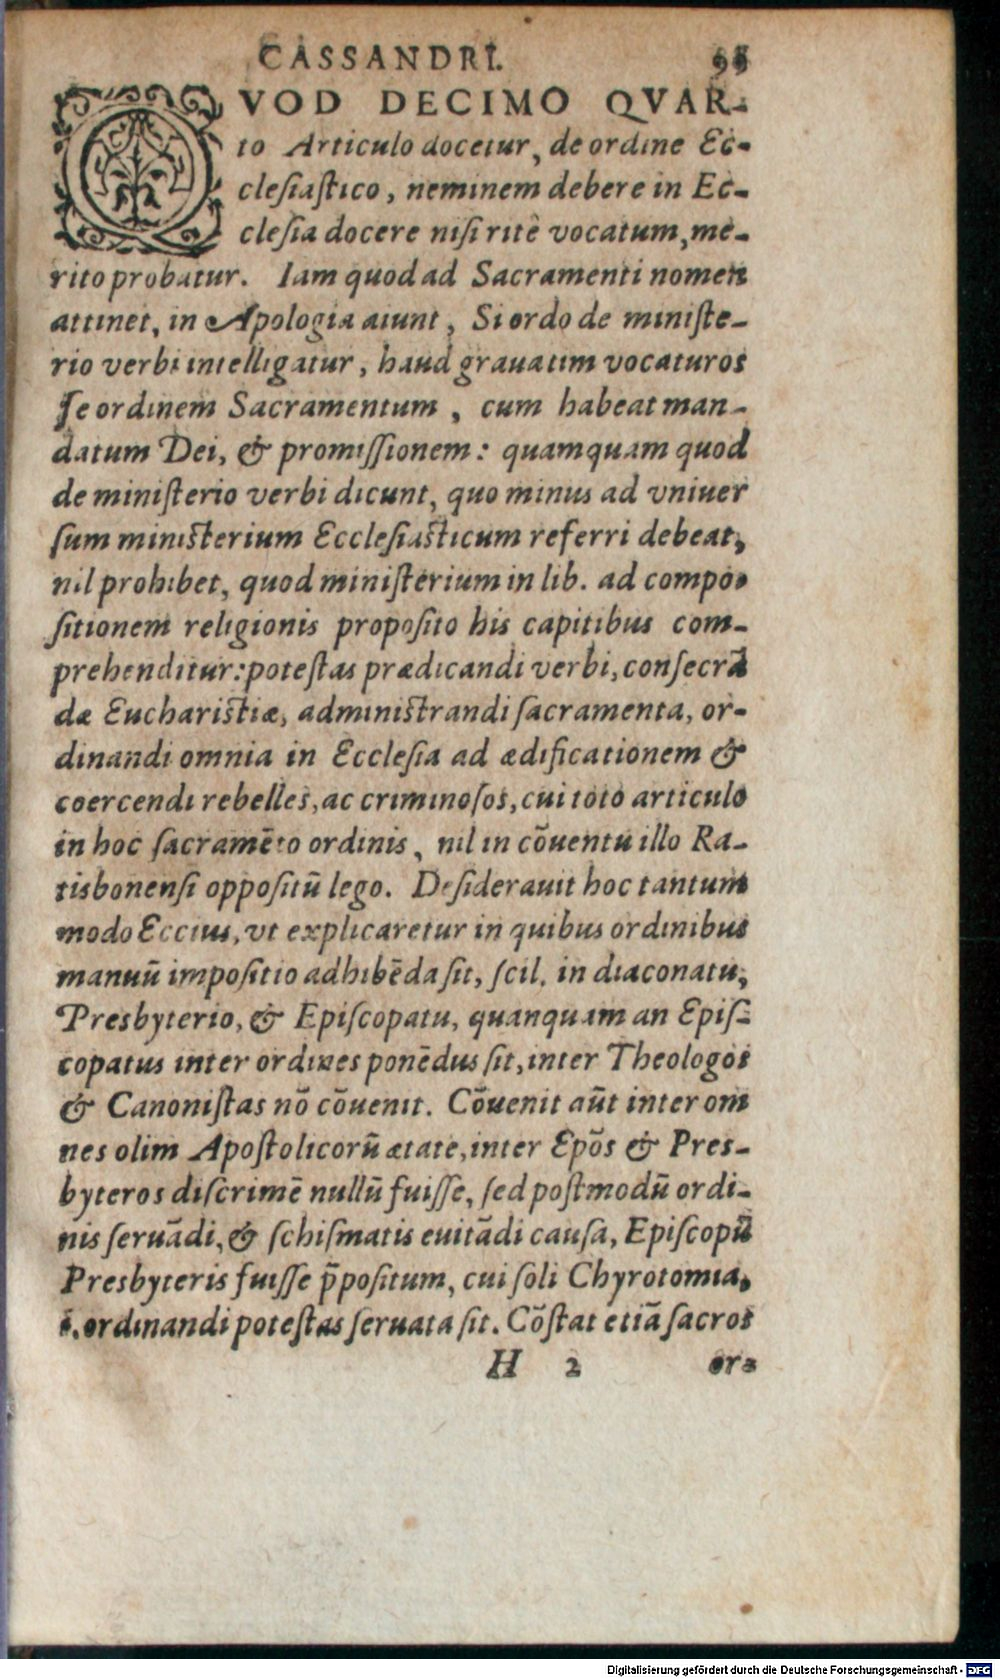 CASSANDRI. 99
QVOD DECIMO QVAR-
to Articulo docetur, de ordine Ec-
clesiastico, neminem debere in Ec-
clesia docere nisi ritè vocatum, me-
rito probatur. Iam quod ad Sacramenti nomen
attinet, in Apologia aiunt, Si ordo de ministe-
rio verbi intelligatur, haud grauatim vocaturos
se ordinem Sacramentum, cum habeat man-
datum Dei, & promissionem: quamquam quod
de ministerio verbi dicunt, quo minus ad vniuer
sum ministerium Ecclesiasticum referri debeat,
nil prohibet, quod ministerium in lib. ad compo-
sitionem religionis proposito his capitibus com-
prehenditur: potestas prædicandi verbi, consecrã
dæ Eucharistiæ, administrandi sacramenta, or-
dinandi omnia in Ecclesia ad ædificationem &
coercendi rebelles, ac criminosos, cui toto articulo
in hoc sacramẽto ordinis, nil in cõuentu illo Ra-
tisbonensi oppositũ lego. Desiderauit hoc tantum
modo Eccius, vt explicaretur in quibus ordinibus
manuũ impositio adhibẽda sit, scil. in diaconatu,
Presbyterio, & Episcopatu, quanquam an Epis-
copatus inter ordines ponẽdus sit, inter Theologos
& Canonistas nõ cõuenit. Cõuenit aũt inter om
nes olim Apostolicorũ ætate, inter Epõs & Pres-
byteros discrimẽ nullũ fuisse, sed postmodũ ordi-
nis seruãdi, & schismatis euitãdi causa, Episcopũ
Presbyteris fuisse p̃positum, cui soli Chyrotomia,
i. ordinandi potestas seruata sit. Cõstat etiã sacros
H 2 or-
Digitalisierung gefördert durch die Deutsche Forschungsgemeinschaft - DFG